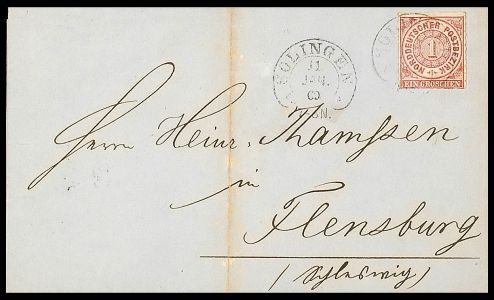 SOLINGEN
11
JAN.
NORDDEUTSCHER POSTBEZIRK
1
EIN GROSCHEN
Herrn Heinr. Thamssen
in
Flensburg
(Schleswig)